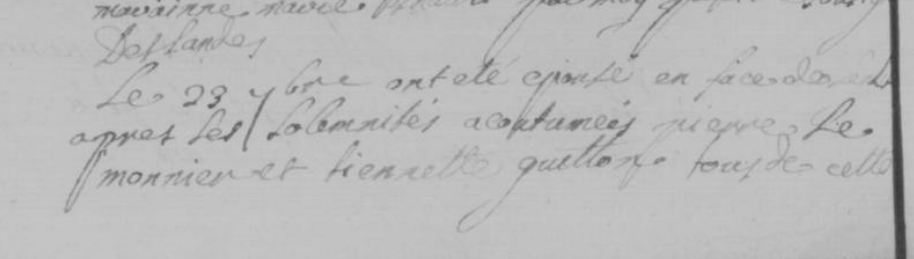 marainne marie par moy
Deslandes
Le 23 7bre ont eté epousé en face de
apres les solemnités acoutumées pierre Le
monnier et tiennette guitton tous de cette